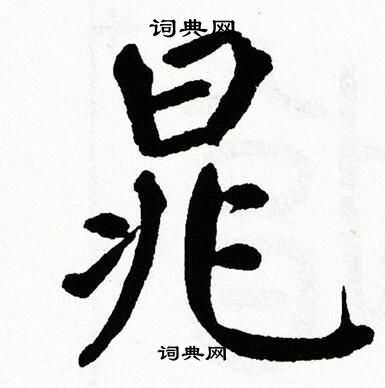 词典网
晁
词典网